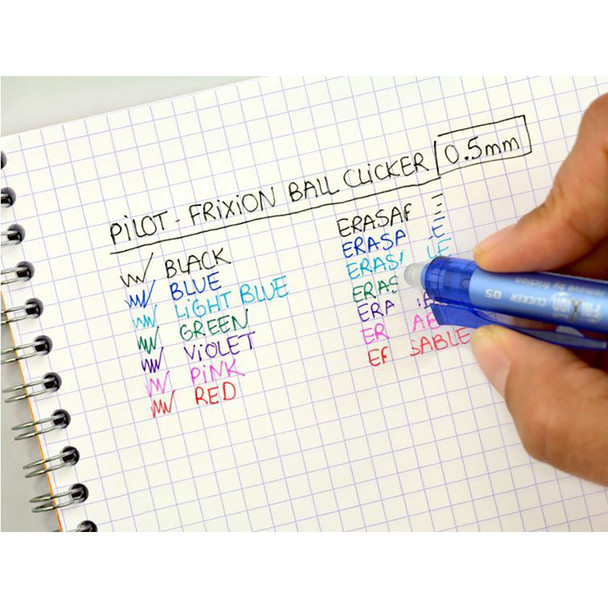 PILOT - FRIXION BALL CLICKER 0.5mm
BLACK
BLUE
LIGHT BLUE
GREEN
VIOLET
PINK
RED
ERASA E
ERASA E
ERAS LE
ERAS
ERA
ER AB
E SABLE
CLICKER 05